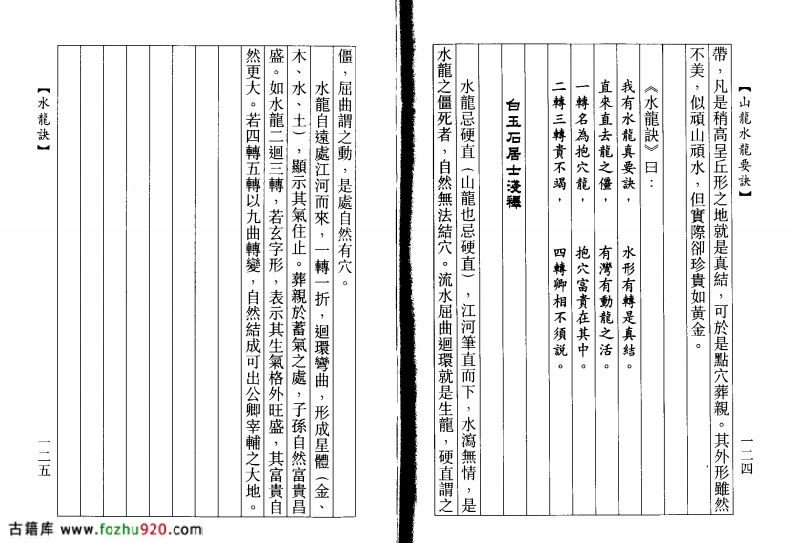 【山龍水龍要訣】
一二四
帶，凡是稍高呈丘形之地就是真結，可於是點穴葬親。其外形雖然
不美，似頑山頑水，但實際卻珍貴如黃金。
《水龍訣》曰：
我有水龍真要訣，　水形有轉是真結。
直來直去龍之僵，　有灣有動龍之活。
一轉名為抱穴龍，　抱穴富貴在其中。
二轉三轉貴不竭，　四轉卿相不須說。
白玉石居士淺釋
水龍忌硬直（山龍也忌硬直），江河筆直而下，水瀉無情，是
水龍之僵死者，自然無法結穴。流水屈曲迴環就是生龍，硬直謂之
僵，屈曲謂之動，是處自然有穴。
水龍自遠處江河而來，一轉一折，迴環彎曲，形成星體（金、
木、水、土），顯示其氣住止。葬親於蓄氣之處，子孫自然富貴昌
盛。如水龍二迴三轉，若玄字形，表示其生氣格外旺盛，其富貴自
然更大。若四轉五轉以九曲轉變，自然結成可出公卿宰輔之大地。
【水龍訣】
一二五
古籍库 www.fozhu920.com